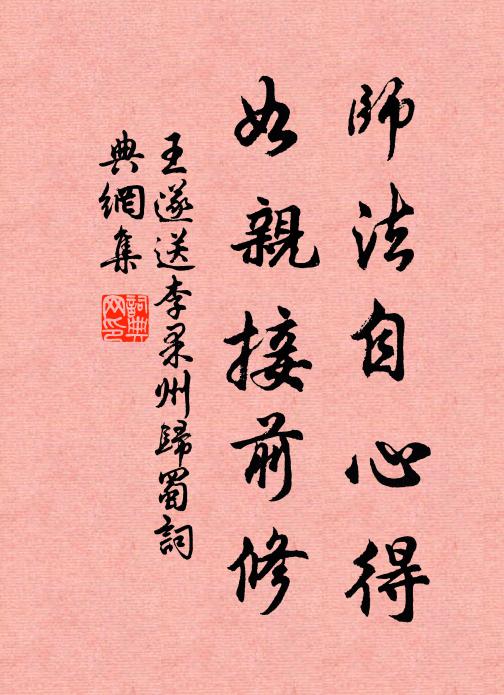 師法自心得
如親接前修
王遂送李果州歸蜀詞
典網集
詞典網印